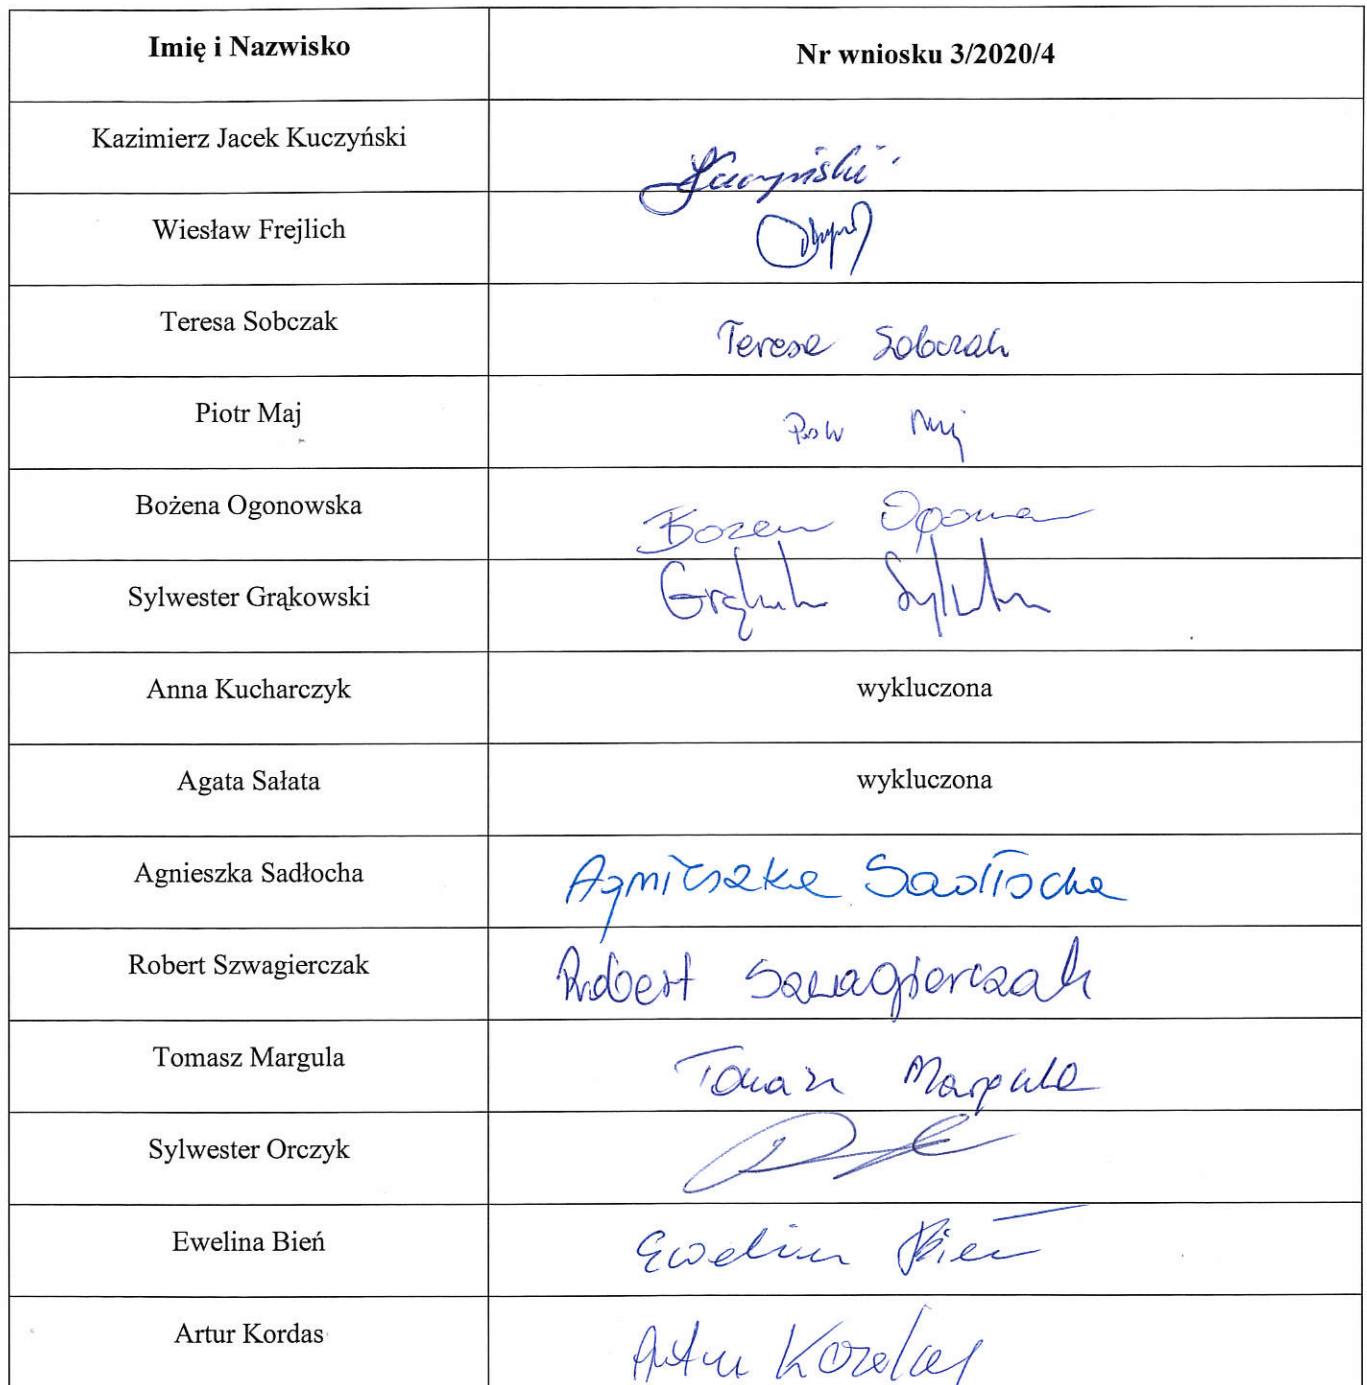 Imię i Nazwisko
Nr wniosku 3/2020/4
Kazimierz Jacek Kuczyński
Kuczyński
Wiesław Frejlich
Teresa Sobczak
Teresa Sobczak
Piotr Maj
Piotr Maj
Bożena Ogonowska
Bożena
Sylwester Grąkowski
Anna Kucharczyk
wykluczona
Agata Sałata
wykluczona
Agnieszka Sadłocha
Agnieszka Sadłocha
Robert Szwagierczak
Robert Szwagierczak
Tomasz Margula
Tomasz Margula
Sylwester Orczyk
Ewelina Bień
Ewelina Bień
Artur Kordas
Artur Kordas